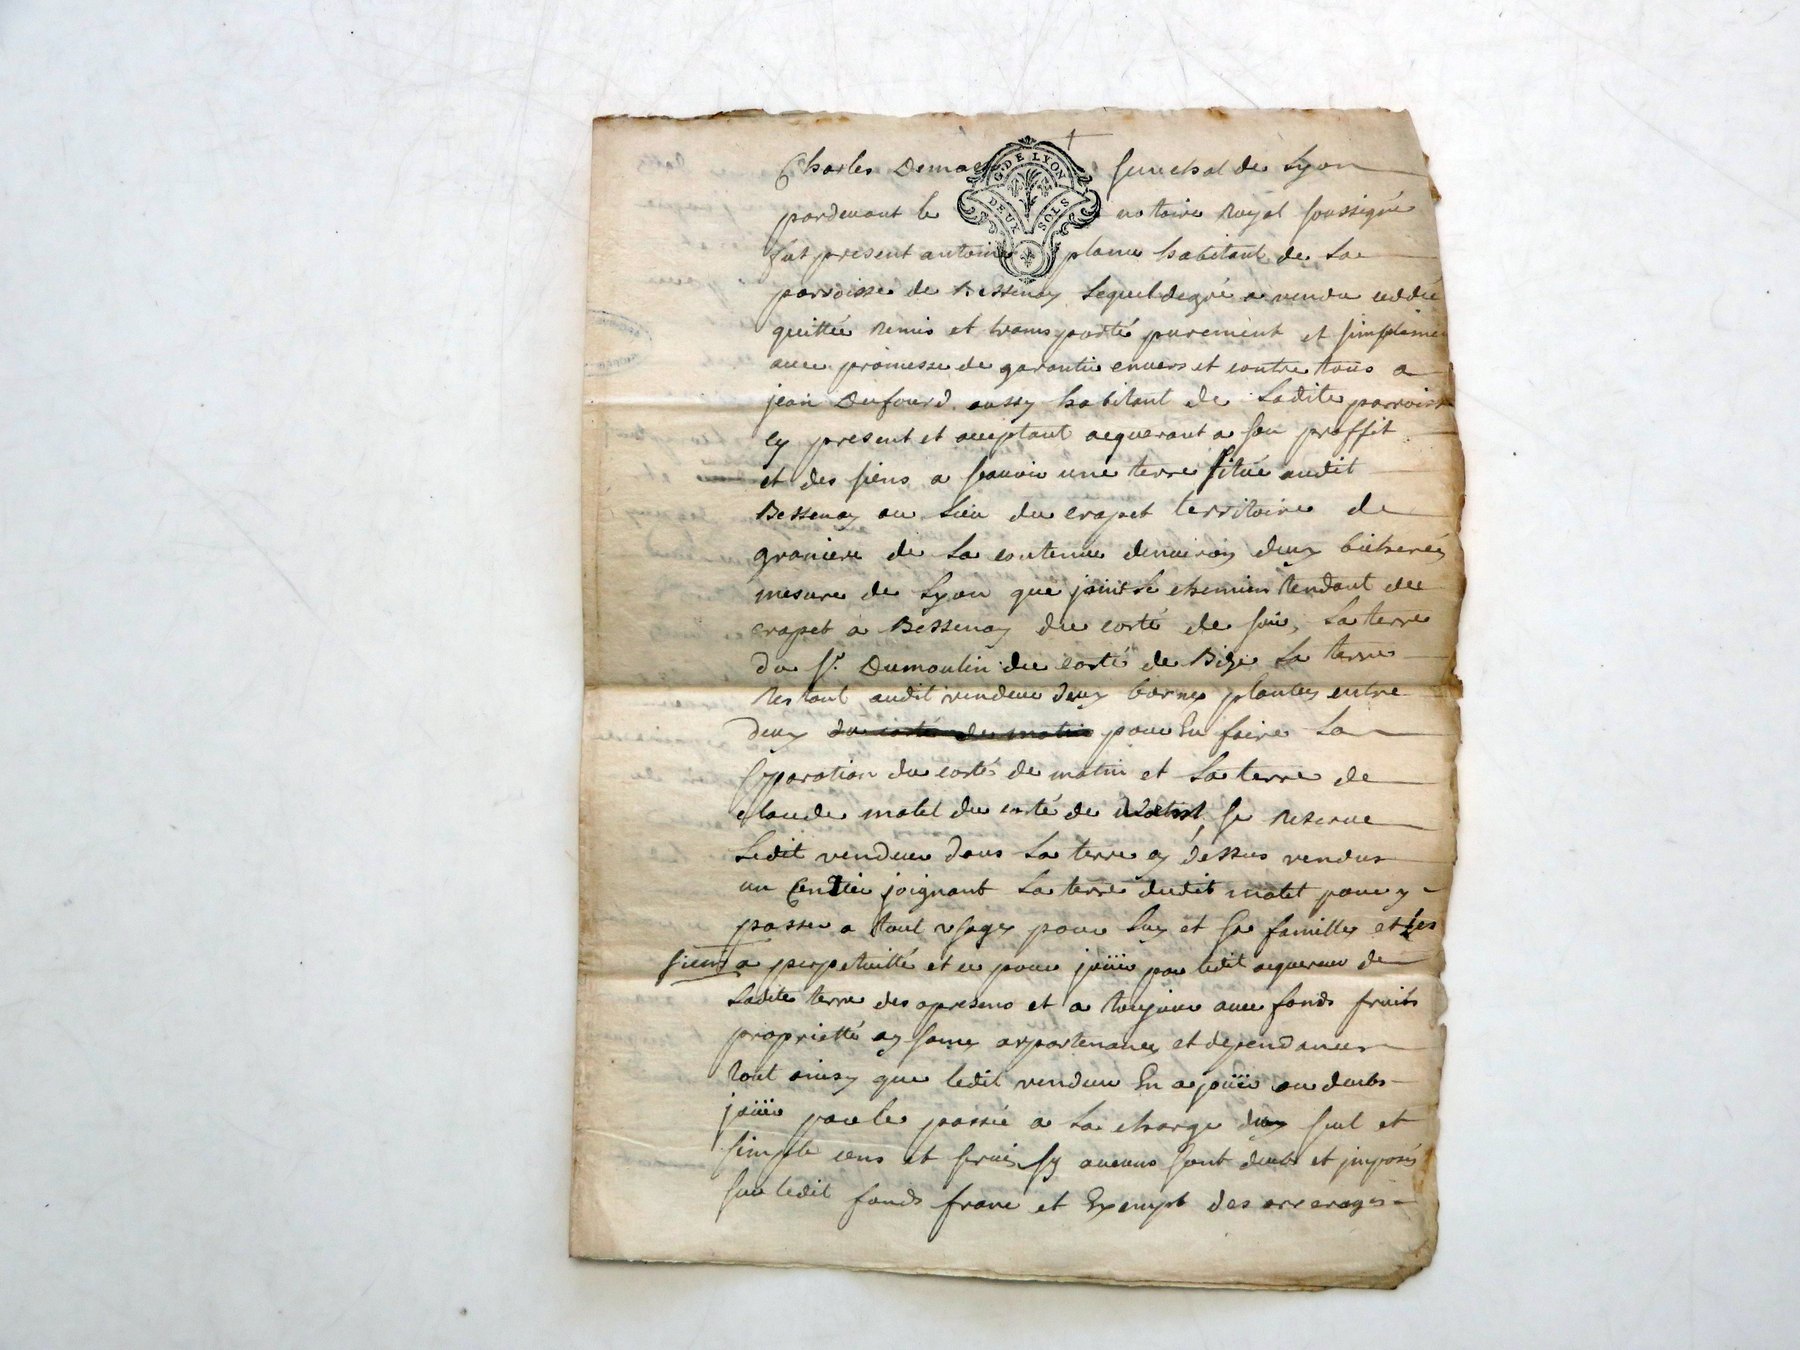 Charles Demas senechal de Lyon
G. DE LYON
DEUX SOLS
pardevant le notaire Royal soussigné
fut present antoine plane habitant de La
parroisse de Bessenay Lequel degré a vendu ceddé
quitté Remis et transporté purement et simplemen
avec promesse de garantie envers et contre tous a
jean Dufourd aussy habitant de Ladite parroisse
cy present et acceptant acquerant a son proffit
et des siens a scavoir une terre situé audit
Bessenay au Lieu du crapet territoire de
graniere de La contenue denviron deux bicherés
mesure de Lyon que joint Le chemin tendant de
crapet a Bessenay du costé de soir, La terre
du Sr. Dumoulin du costé de Bize La terre
Restant audit vendeur deux bornes plantés entre
deux du costé de matin pour En faire La
separation du costé de matin et La terre de
claude matel du costé de se Reserve
Ledit vendeur dans La terre cy dessus vendue
un Sentier joignant La terre dudit matel pour y
passer a tout usages pour Luy et Sa famille et Les
siens a perpetuitté et ce pour joüir par ledit acquereur de
Ladite terre des apresens et a toujour avec fonds fruits
proprietté appartenances et dependances
tout ainsy que ledit vendeur En a joüir ou deubs
joüir par le passé a La charge du seul et
simple cens et servis sy aucuns sont deubs et jmposés
sur ledit fonds franc et Exempt des arrerages